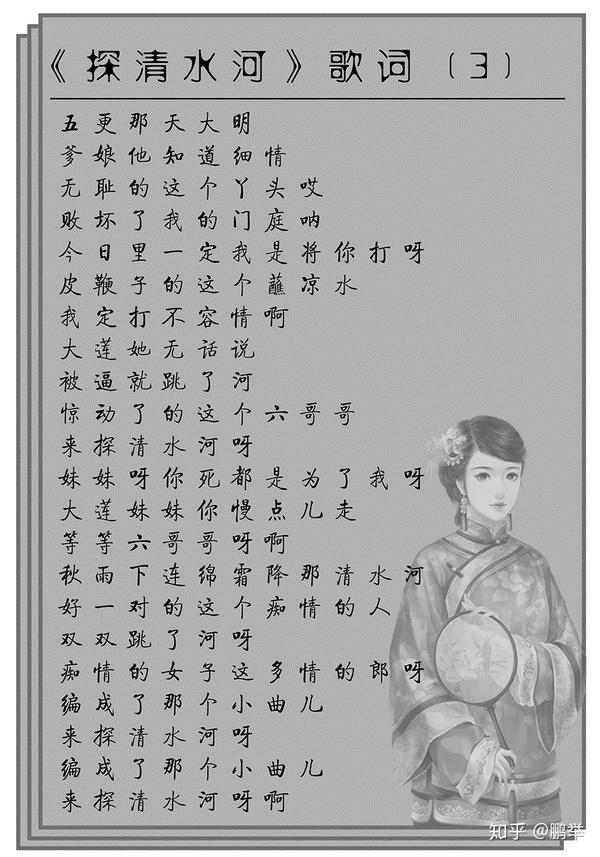 《探清水河》歌词(3)
五更那天大明
爹娘他知道细情
无耻的这个丫头哎
败坏了我的门庭呐
今日里一定我是将你打呀
皮鞭子的这个蘸凉水
我定打不容情啊
大莲她无话说
被逼就跳了河
惊动了的这个六哥哥
来探清水河呀
妹妹呀你死都是为了我呀
大莲妹妹你慢点儿走
等等六哥哥呀啊
秋雨下连绵霜降那清水河
好一对的这个痴情的人
双双跳了河呀
痴情的女子这多情的郎呀
编成了那个小曲儿
来探清水河呀
编成了那个小曲儿
来探清水河呀啊
知乎 @鹏举